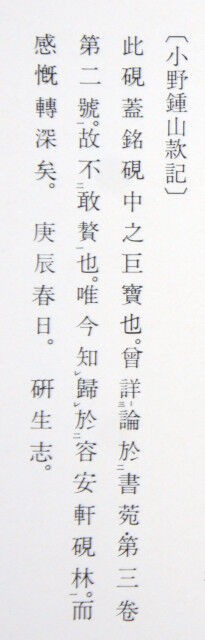 〔小野鍾山款記〕
此硯蓋銘硯中之巨寶也。曾詳論於書菀・第三卷
第二號。故不敢贅也。唯今知歸於容安軒硯林。而
感慨轉深矣。　庚辰春日。　硏生志。